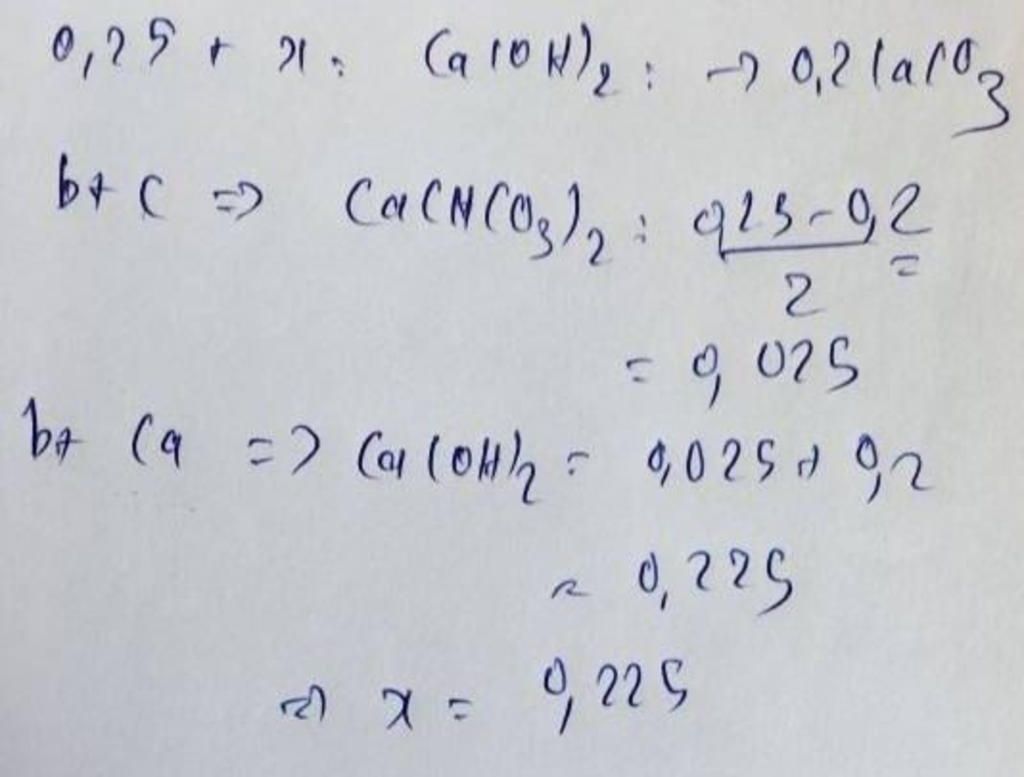 0,25 + x : Ca(OH)2 : → 0,2 CaCO3
bt C => Ca(HCO3)2 : 0,25 - 0,2 / 2 =
= 0,025
bt Ca => Ca(OH)2 = 0,025 + 0,2
= 0,225
=> x = 0,225